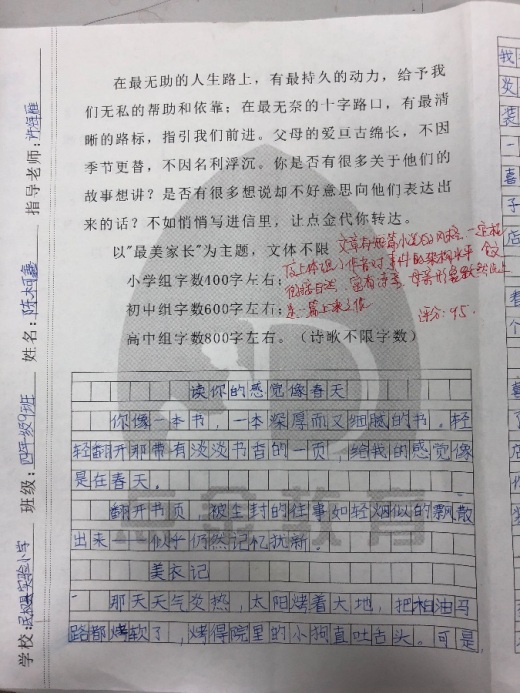 在最无助的人生路上，有最持久的动力，给予我
们无私的帮助和依靠；在最无奈的十字路口，有最清
晰的路标，指引我们前进。父母的爱亘古绵长，不因
季节更替，不因名利浮沉。你是否有很多关于他们的
故事想讲？是否有很多想说却不好意思向他们表达出
来的话？不如悄悄写进信里，让点金代你转达。
以"最美家长"为主题，文体不限
小学组字数400字左右；
初中组字数600字左右；
高中组字数800字左右。（诗歌不限字数）
文章有短篇小说的风格，一定程
度上体现小作者对事件的架构水平
是一篇上乘之作
评分：95.
读你的感觉像春天
你像一本书，一本深厚而又细腻的书。轻
轻翻开那带有淡淡书香的一页，给我的感觉像
是在春天。
翻开书页，被尘封的往事如轻烟似的飘散
出来——似乎仍然记忆犹新。
美衣记
那天天气炎热，太阳烤着大地，把柏油马
路都烤软了，烤得院里的小狗直吐舌头。可是
学校：实验小学 班级：四年级9班 姓名：陈 指导老师：许
点金教育
我
炎
装
一
喜
子
店